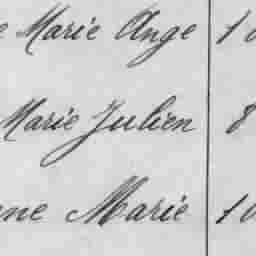 e Marie Ange 10
Marie Julien 8
ne Marie 10